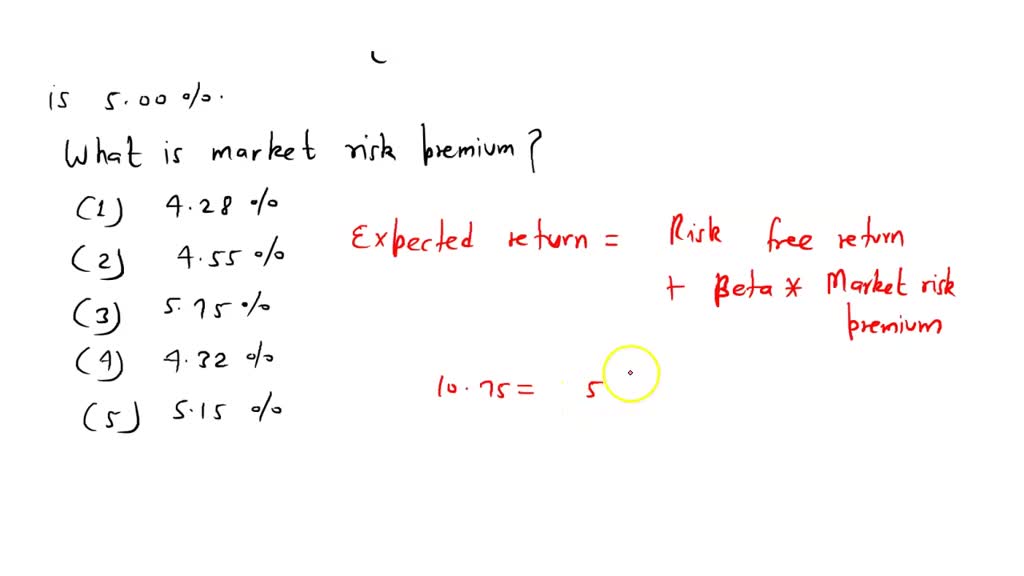 is 5.00 %.
What is market risk premium?
(1) 4.28 %
(2) 4.55 %
(3) 5.75 %
(4) 4.32 %
(5) 5.15 %
Expected return = Risk free return
+ Beta * Market risk
premium
10.75 = 5